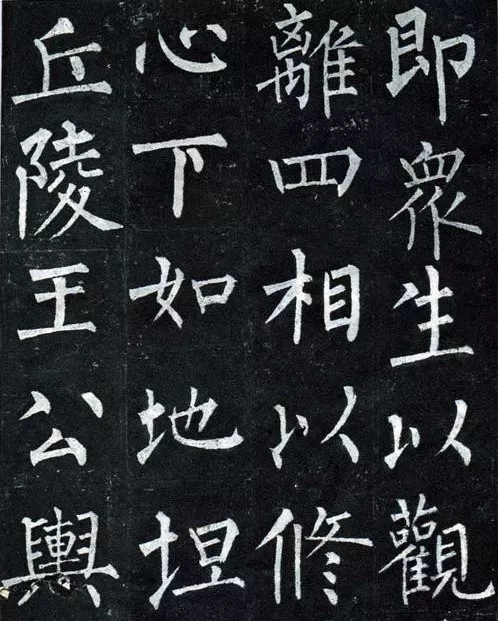 即衆生以觀
離四相以修
心下如地坦
丘陵王公輿